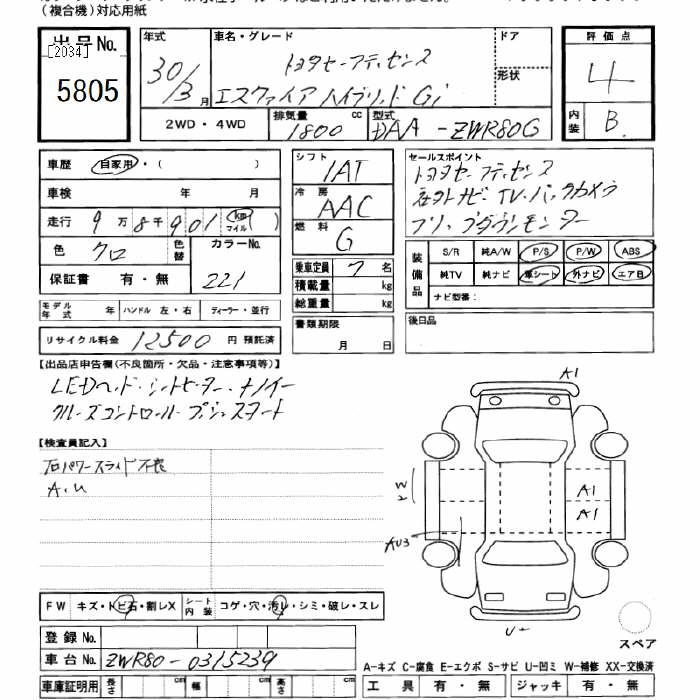 (複合機)対応用紙
出品 No.
[2034]
5805
年式
30/3 月
車名・グレード
トヨタセーフティセンス
エスクァイア ハイブリッド Gi
ドア
形状
2WD・4WD
排気量
1800 cc
型式
DAA-ZWR80G
評価点
4
内装
B.
車歴 自家用・( )
車検 年 月
走行 9万8千901 km マイル
色 クロ 色替
カラーNo.
221
保証書 有・無
モデル年式 年 ハンドル 左・右 ディーラー・並行
リサイクル料金 12500 円 預託済
シフト
IAT
冷房
AAC
燃料
G
乗車定員 7 名
積載量 kg
総重量 kg
書類期限
月 日
セールスポイント
トヨタセーフティセンス
社外ナビ・TV・バックカメラ
フリップダウンモニター
装備品
S/R 純A/W P/S P/W ABS
純TV 純ナビ 革シート 外ナビ エアB
ナビ型番:
後日品
【出品店申告欄(不良箇所・欠品・注意事項等)】
LEDヘッド・シートヒーター・ナノイー
クルーズコントロール・プッシュスタート
【検査員記入】
右パワースライド不良
A.U
FW キズ・トビ石・割レX シート内装 コゲ・穴・汚レ・シミ・破レ・スレ
登録 No.
車台 No. ZWR80-0315239
車庫証明用 長さ cm 幅 cm 高さ cm
A1
W
A1
A1
AU3
U-
スペア
A-キズ C-腐食 E-エクボ S-サビ U-凹ミ W-補修 XX-交換済
工具 有・無 ジャッキ 有・無